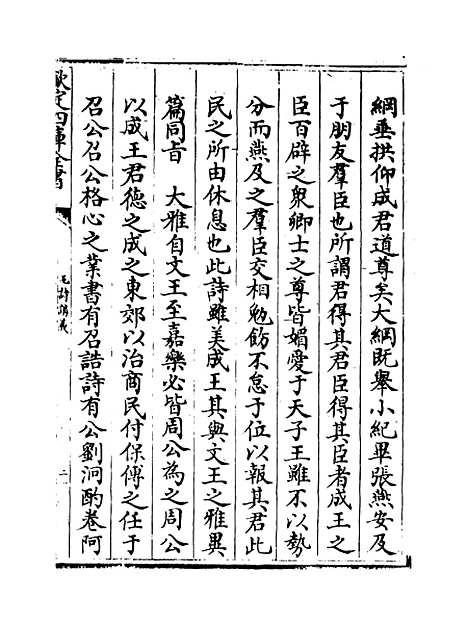 綱垂拱仰成君道尊矣大綱既舉小紀畢張燕安及
于朋友羣臣也所謂君得其君臣得其臣者成王之
臣百辟之衆卿士之尊皆媚愛于天子王雖不以勢
分而燕及之羣臣交相勉飭不怠于位以報其君此
民之所由休息也此詩雖美成王其與文王之雅異
篇同旨　大雅自文王至嘉樂必皆周公為之周公
以成王君德之成之東郊以治商民付保傅之任于
召公召公格心之業書有召誥詩有公劉泂酌卷阿
欽定四庫全書